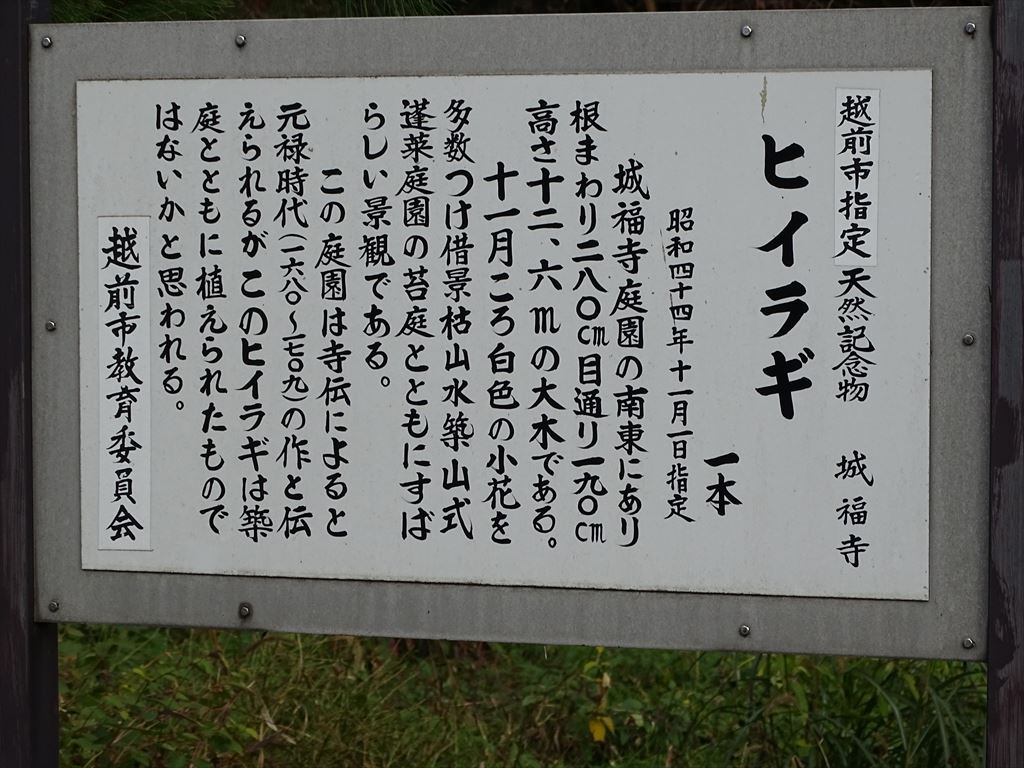 越前市指定 天然記念物 城福寺
ヒイラギ
一本
昭和四十四年十一月一日指定
城福寺庭園の南東にあり
根まわり二八〇㎝目通り一九〇㎝
高さ十二、六mの大木である。
十一月ころ白色の小花を
多数つけ借景枯山水築山式
蓬莱庭園の苔庭とともにすば
らしい景観である。
この庭園は寺伝によると
元禄時代(一六八〇〜一七〇九)の作と伝
えられるがこのヒイラギは築
庭とともに植えられたもので
はないかと思われる。
越前市教育委員会